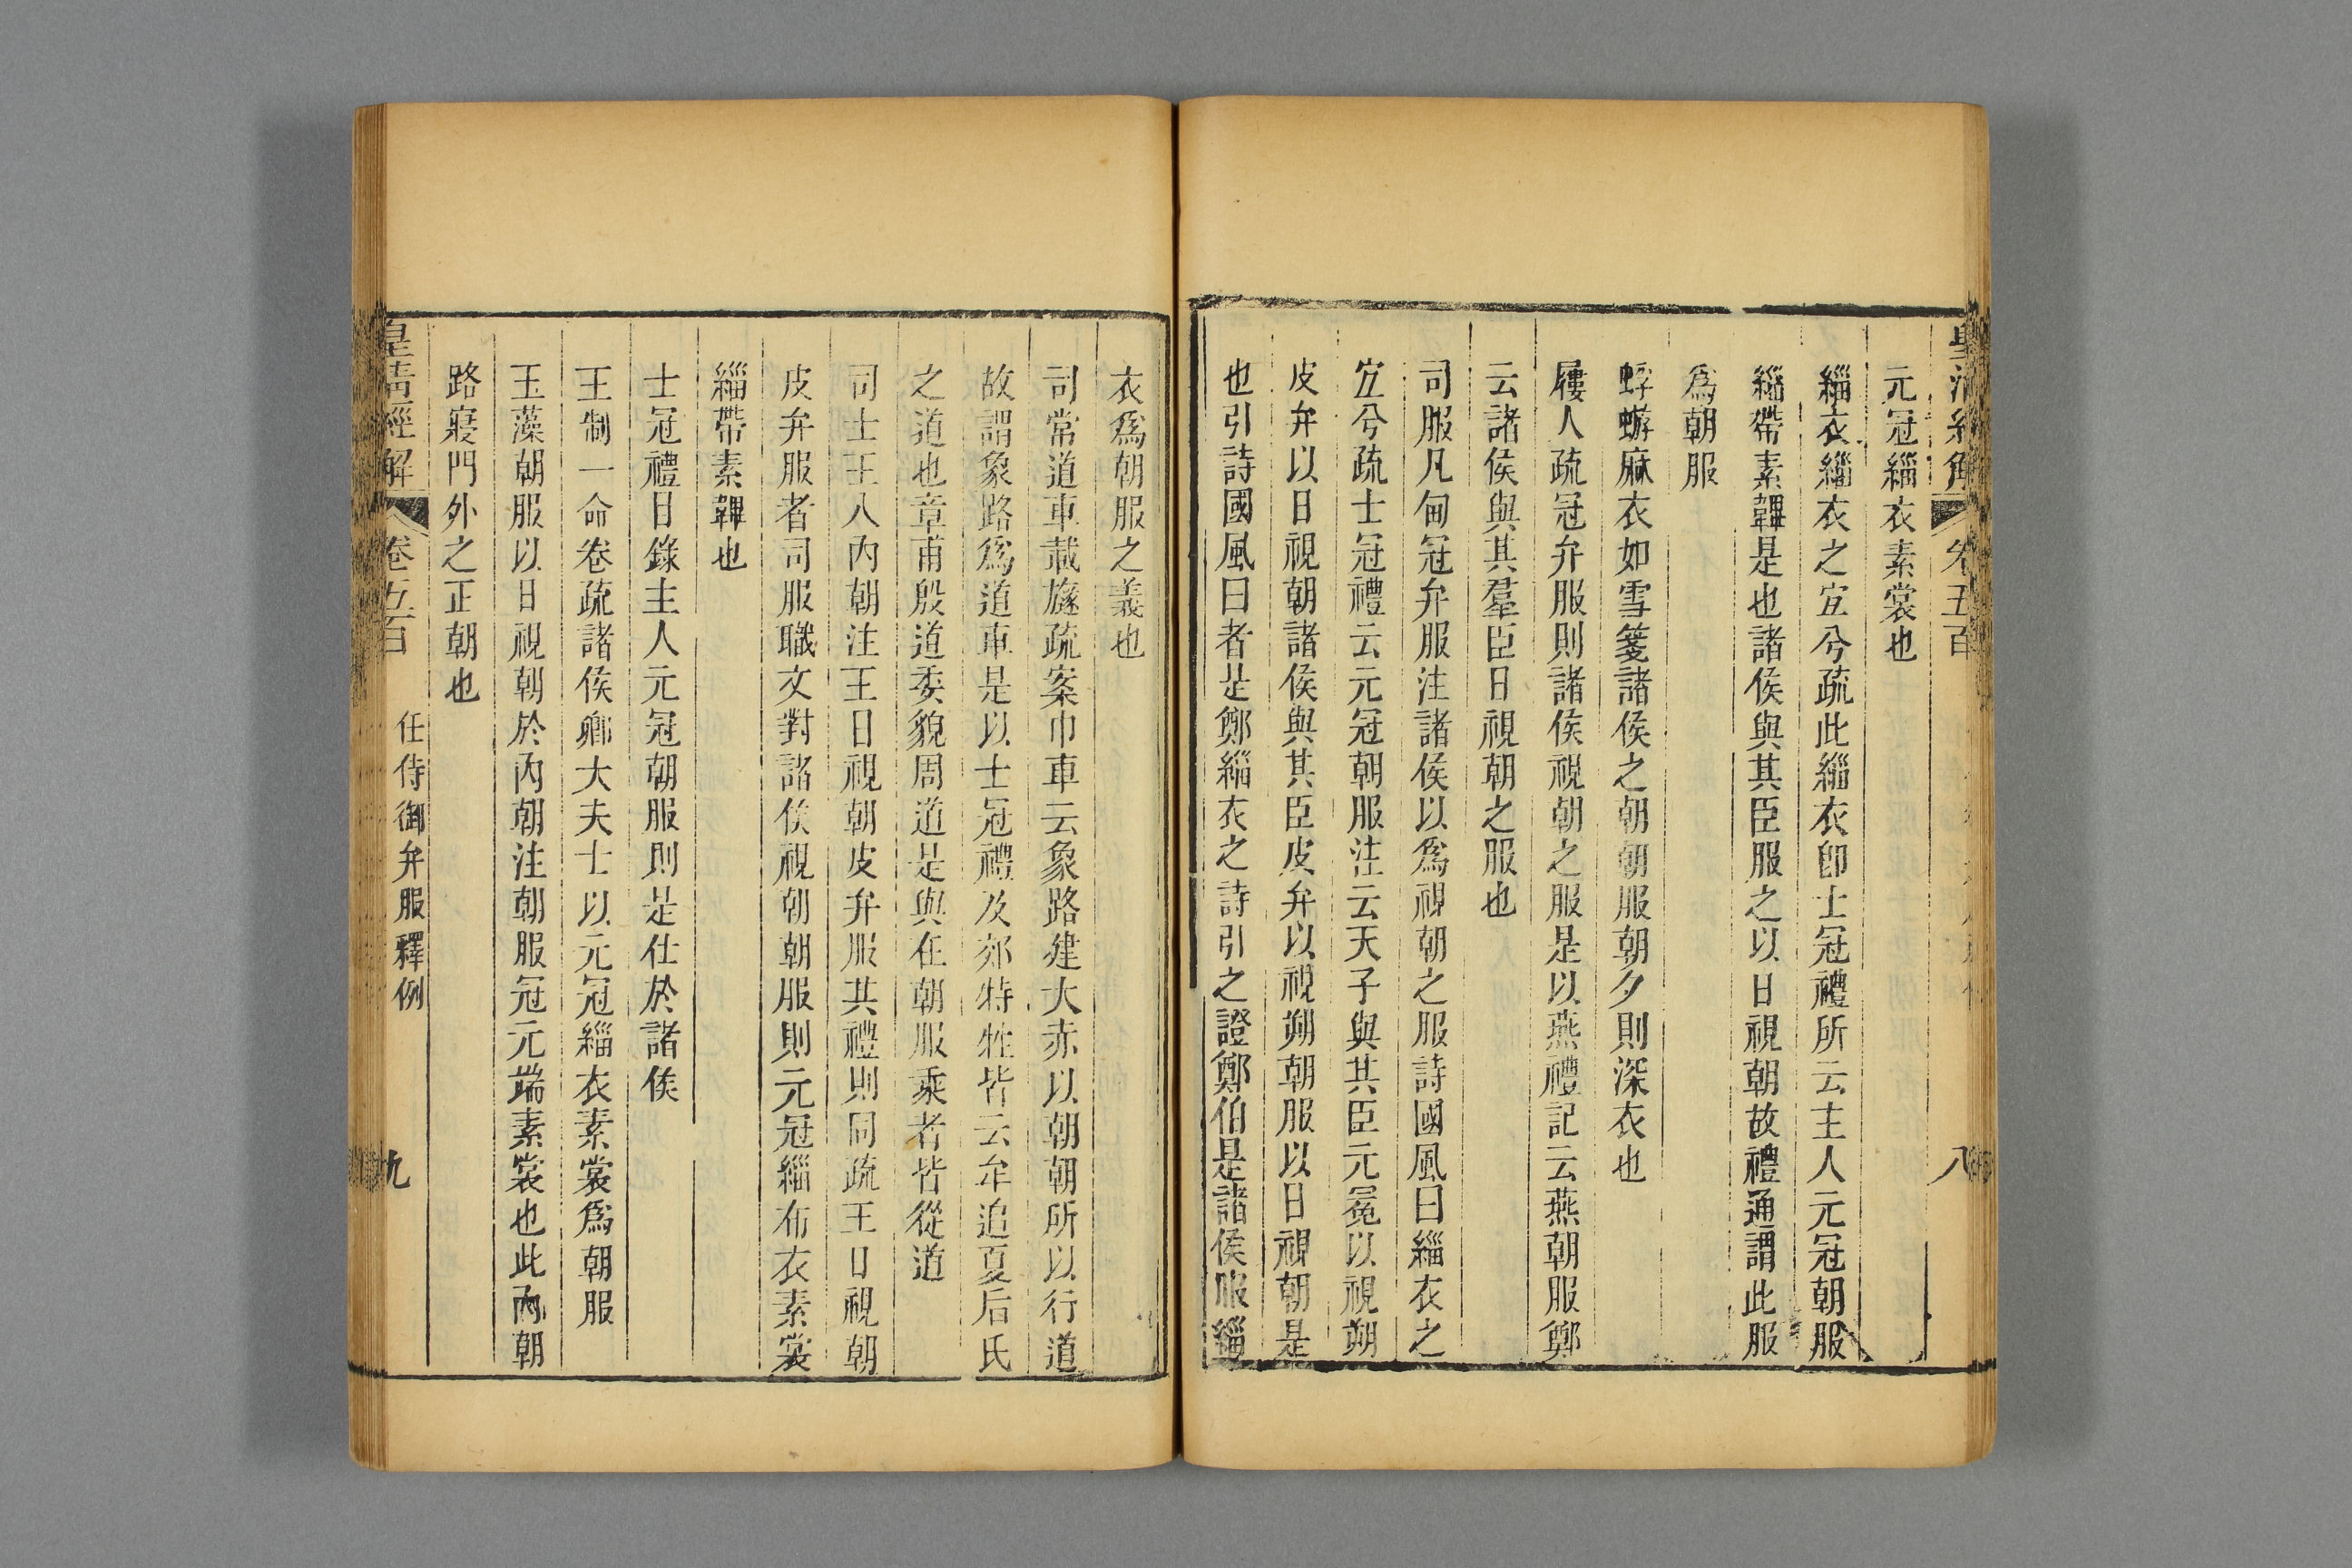 皇清經解
卷五百
八
元冠緇衣素裳也
緇衣緇衣之宜兮疏此緇衣卽士冠禮所云主人元冠朝服
緇帶素韠是也諸侯與其臣服之以日視朝故禮通謂此服
爲朝服
蜉蝣麻衣如雪箋諸侯之朝朝服朝夕則深衣也
屨人疏冠弁服則諸侯視朝之服是以燕禮記云燕朝服鄭
云諸侯與其羣臣日視朝之服也
司服凡甸冠弁服注諸侯以爲視朝之服詩國風曰緇衣之
宜兮疏士冠禮云元冠朝服注云天子與其臣元冕以視朔
皮弁以日視朝諸侯與其臣皮弁以視朔朝服以日視朝是
也引詩國風曰者是鄭緇衣之詩引之證鄭伯是諸侯服緇
衣爲朝服之義也
司常道車載旞疏案巾車云象路建大赤以朝朝所以行道
故謂象路爲道車是以士冠禮及郊特牲皆云牟追夏后氏
之道也章甫殷道委貌周道是與在朝服乘者皆從道
司士王入內朝注王日視朝皮弁服其禮則同疏王日視朝
皮弁服者司服職文對諸侯視朝朝服則元冠緇布衣素裳
緇帶素韠也
士冠禮日錄主人元冠朝服則是仕於諸侯
王制一命卷疏諸侯卿大夫士以元冠緇衣素裳爲朝服
玉藻朝服以日視朝於內朝注朝服冠元端素裳也此內朝
路寢門外之正朝也
皇清經解
卷五百
任侍御弁服釋例
九